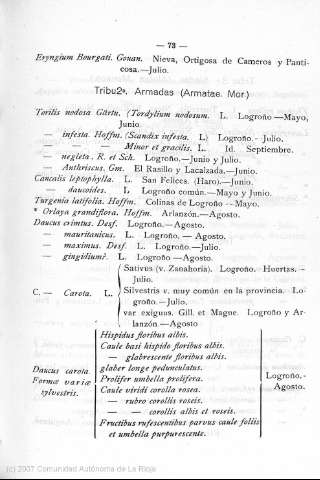 — 73 —
Eryngium Bourgati. Gouan. Nieva, Ortigosa de Cameros y Panti-
cosa.—Julio.
Tribu 2ª. Armadas (Armatae. Mor.)
Torilis nodosa Gärtn. (Tordylium nodosum. L. Logroño—Mayo,
Junio.
— infesta. Hoffm. (Scandix infesta. L) Logroño.- Julio.
— — — Minor et gracilis. L. Id. Septiembre.
— negleta. R. et Sch. Logroño.—Junio y Julio.
— Anthriscus. Gm. El Rasillo y Lacalzada.—Junio.
Caucalis leptophylla. L. San Felices. (Haro).—Junio.
— daucoides. L Logroño común.—Mayo y Junio.
Turgenia latifolia. Hoffm. Colinas de Logroño—Mayo.
* Orlaya grandiflora. Hoffm. Arlanzón.—Agosto.
Daucus crimtus. Desf. Logroño.—Agosto.
— mauritanicus. L. Logroño. — Agosto.
— maximus. Desf. L. Logroño.—Julio.
— gingidium?. L. Logroño—Agosto.
Sativus (v. Zanahoria). Logroño. Huertas.-
Julio.
C. — Carota. L. Silvestris v. muy común en la provincia. Lo-
groño—Julio.
var exiguus. Gill. et Magne. Logroño y Ar-
lanzón—Agosto
Hispidus floribus albis.
Caule basi hispido floribus albis.
— — glabrescente floribus albis.
glaber longe pedunculatus.
Daucus carota. Prolifer umbella prolifera.
Formæ variæ Caule viridi corolla rosea.
sylvestris. — rubro corollis roseis.
— — corollis albis et roseis.
Fructibus rufescentibus parvus caule foliis
et umbella purpurescente.
Logroño.-
Agosto.
(c) 2007 Comunidad Autónoma de La Rioja